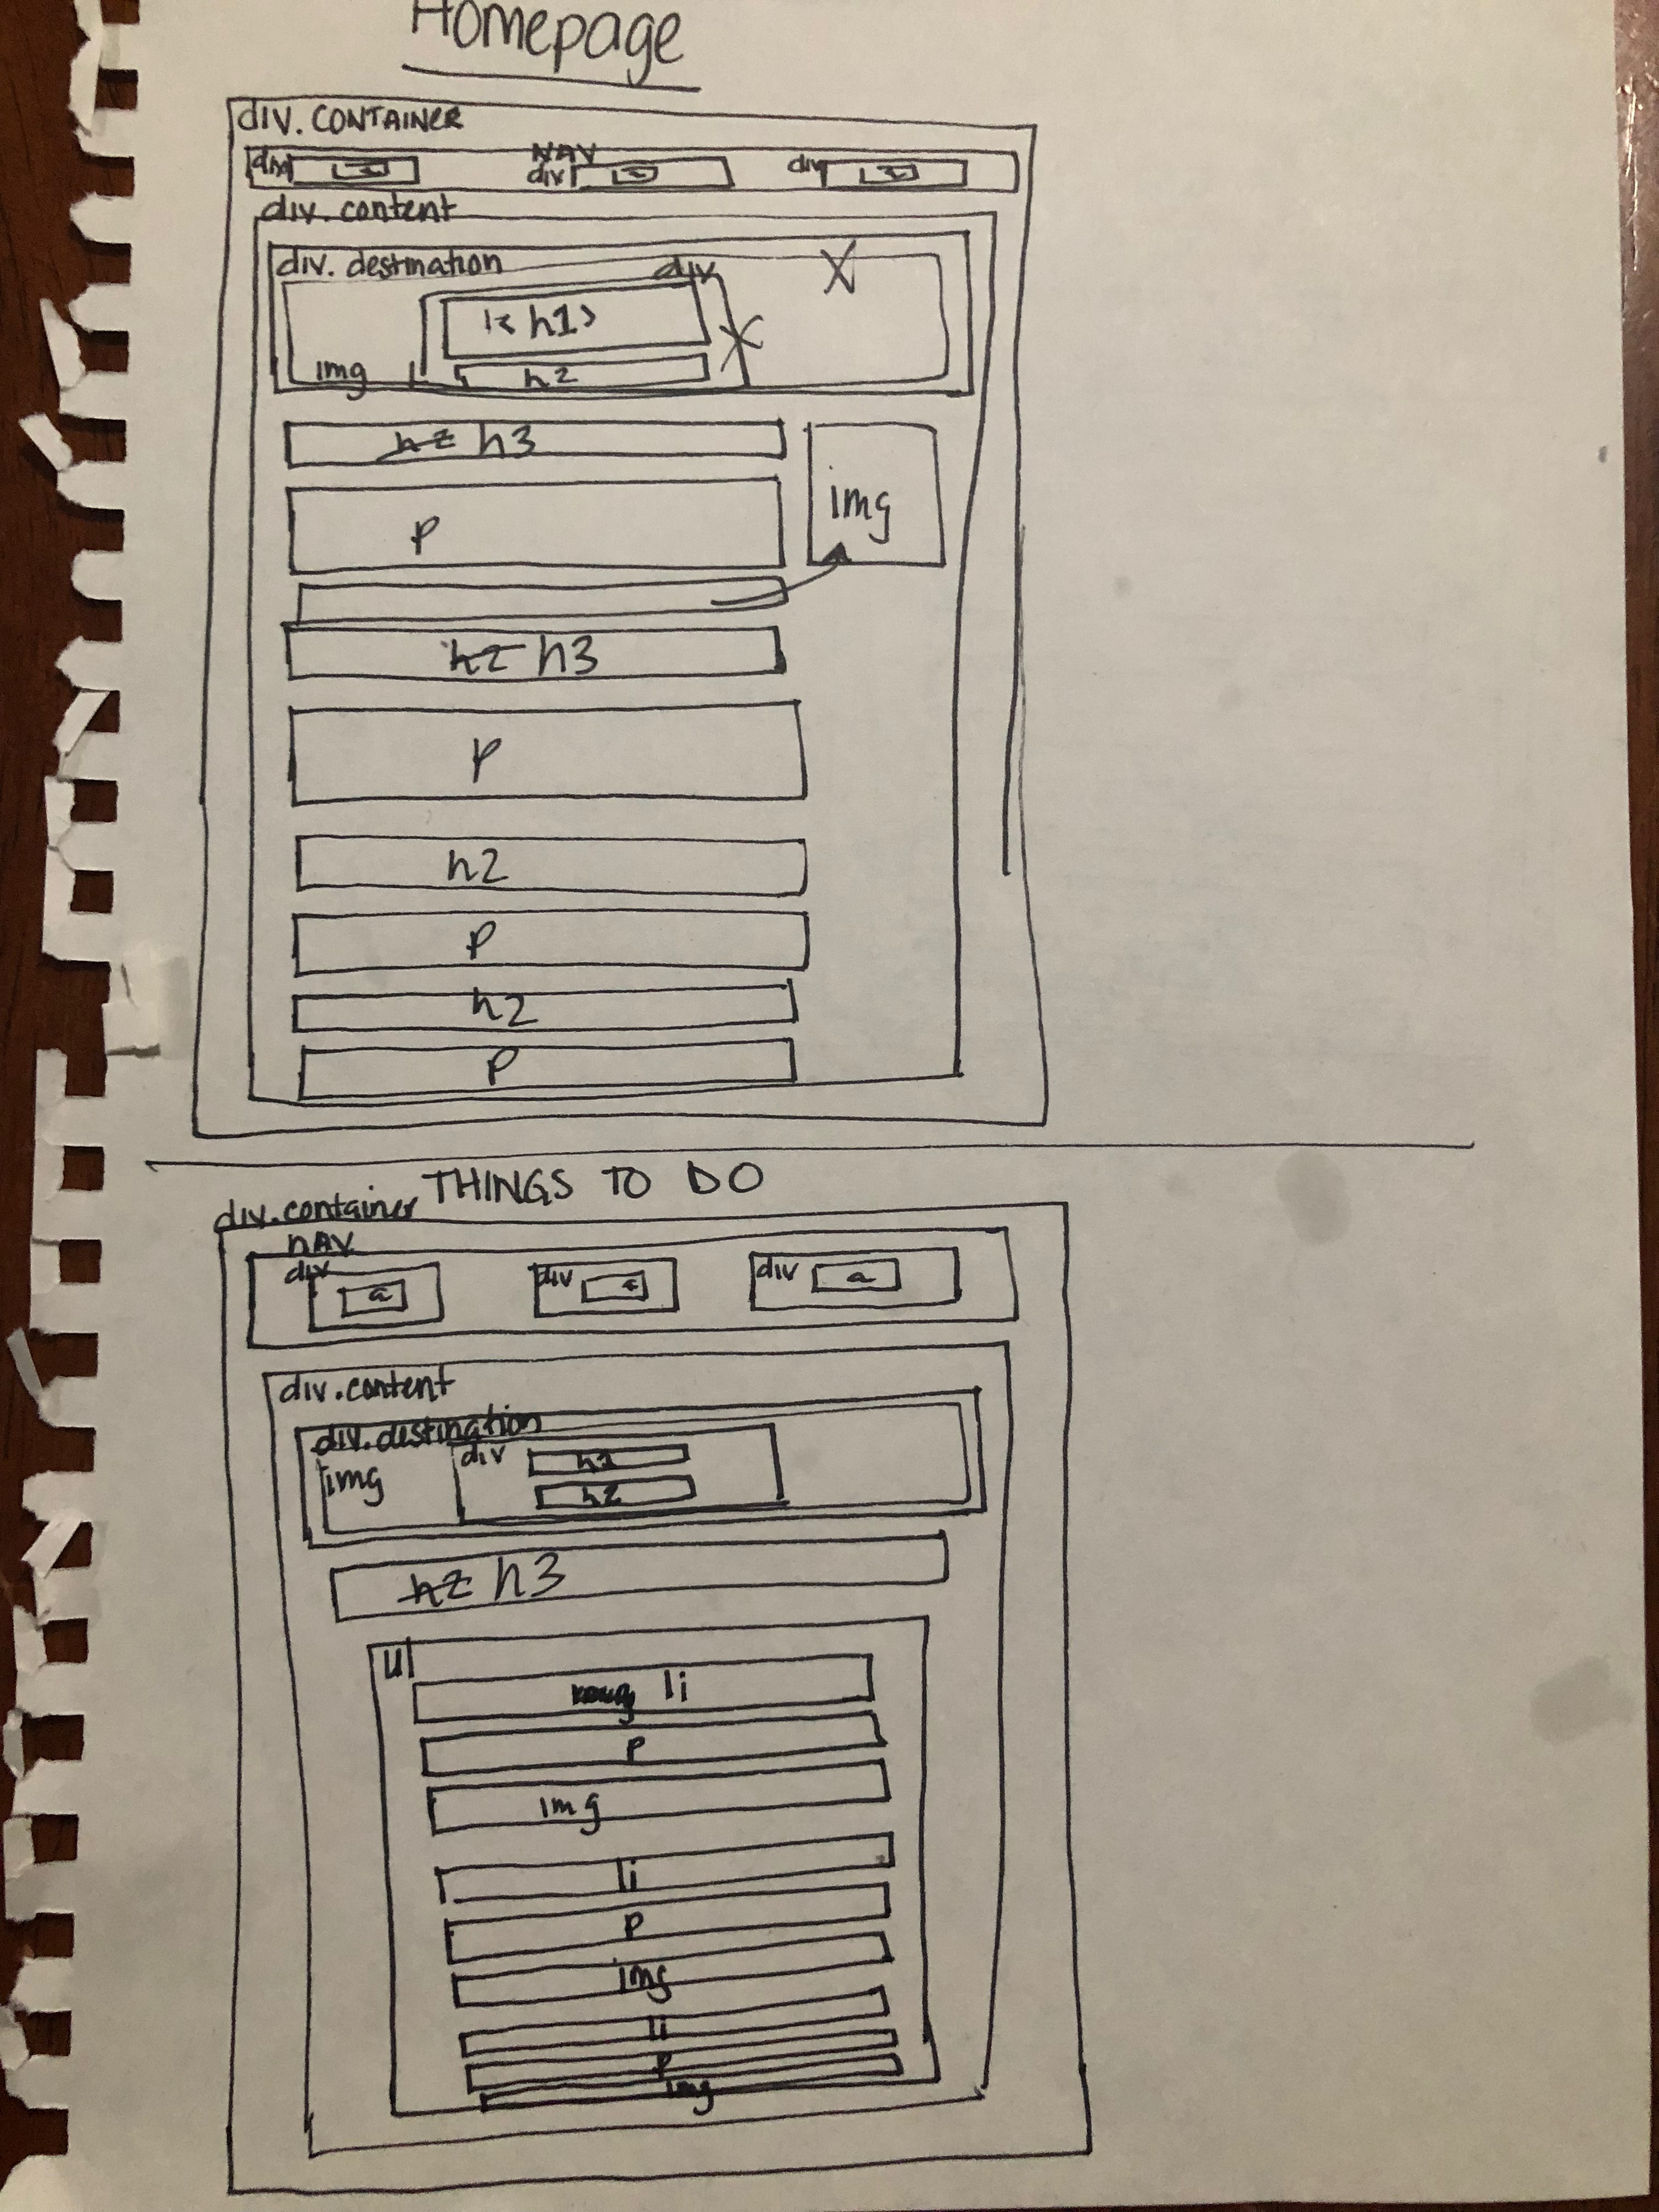 Homepage
div. CONTAINER
NAV
div div div
div. content
div. destination div X
<h1> X
img h2
h2 h3
p img
h2 h3
p
h2
p
h2
p
THINGS TO DO
div.container
nAV
div a div a div a
div.content
div.destination
img div h1
h2
h2 h3
ul
li
p
img
li
p
img
li
p
img